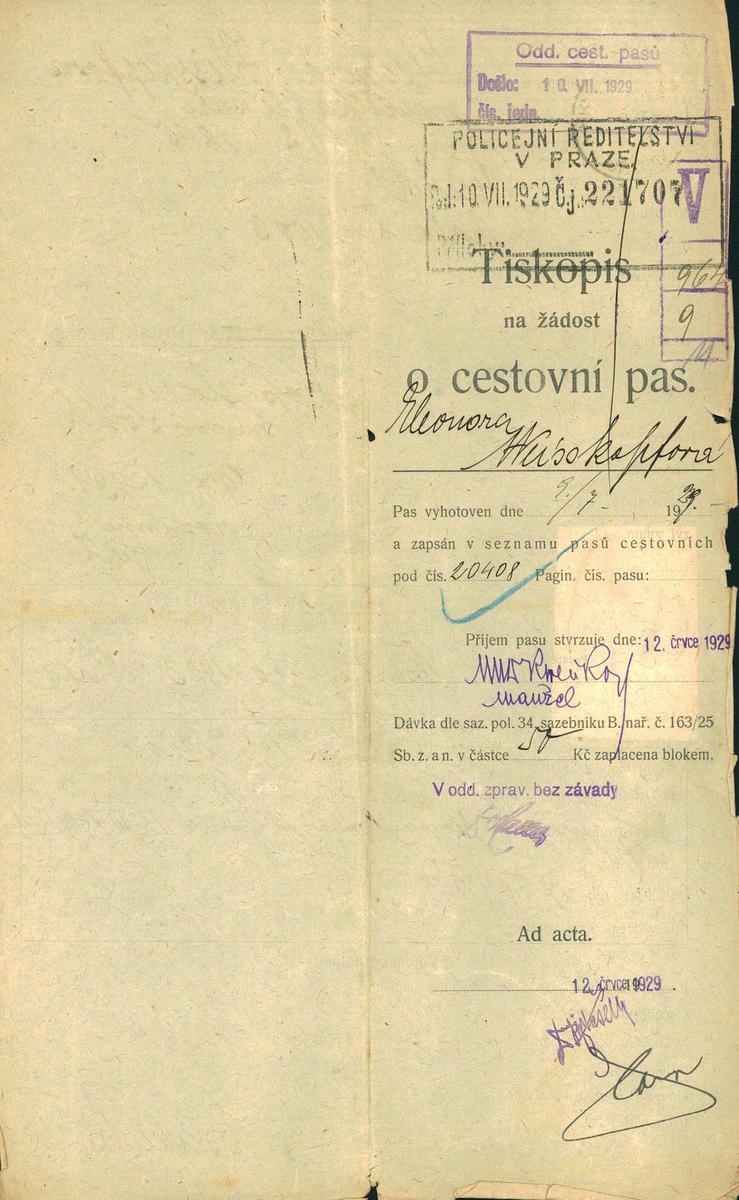 Odd. cest. pasů
Došlo: 10. VII. 1929
čís. jedn.
POLICEJNÍ ŘEDITELSTVÍ
V PRAZE
10. VII. 1929 Čj. 221707
V
964
9
Tiskopis
na žádost
o cestovní pas.
Eleonora
Weisskopfová
Pas vyhotoven dne 9./7. 1929.
a zapsán v seznamu pasů cestovních
pod čís. 20408 Pagin. čís. pasu:
Příjem pasu stvrzuje dne: 12. črvce 1929
manžel
Dávka dle saz. pol. 34, sazebníku B. nař. č. 163/25
Sb. z. a n. v částce 50 Kč zaplacena blokem.
V odd. zprav. bez závady
Ad acta.
12. črvce 1929